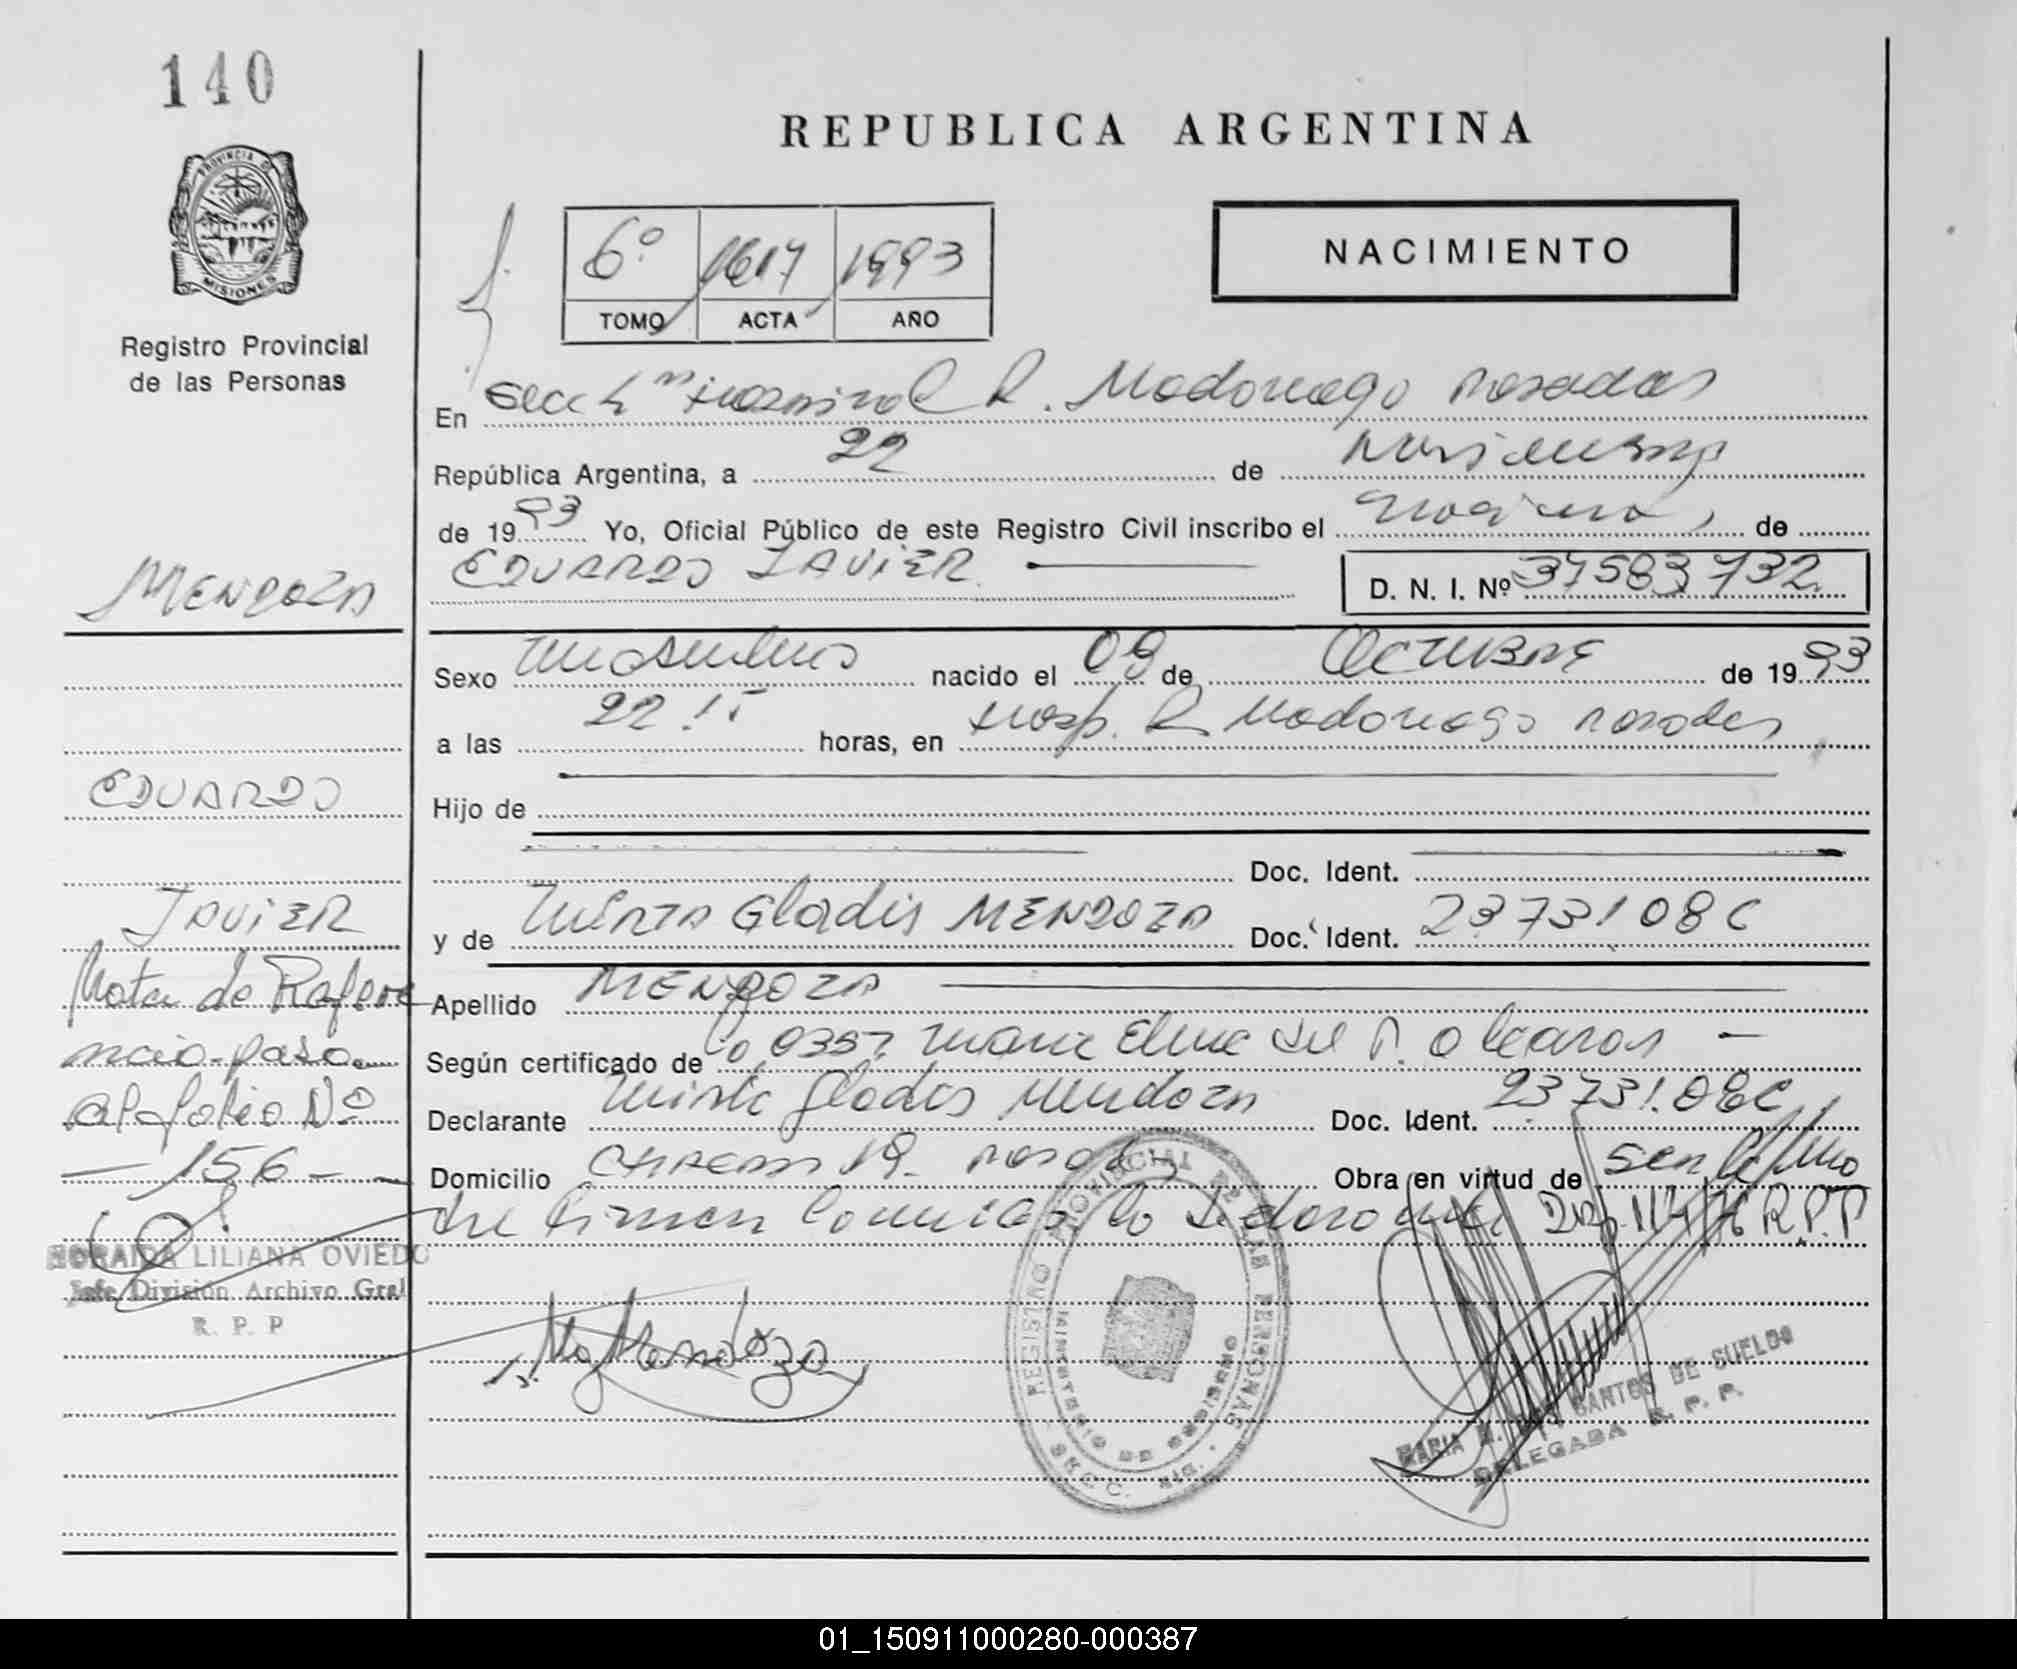 140
REPUBLICA ARGENTINA
PROVINCIA DE
MISIONES
Registro Provincial
de las Personas
6º 1617 1993
TOMO ACTA AÑO
NACIMIENTO
En Secc. Hospital R. Madariaga Posadas
República Argentina, a 22 de Noviembre
de 1993 Yo, Oficial Público de este Registro Civil inscribo el de
EDUARDO JAVIER
D. N. I. Nº 37583732
MENDOZA
Sexo masculino nacido el 09 de OCTUBRE de 1993
a las 22:15 horas, en Hosp. R. Madariaga Posadas
EDUARDO
Hijo de
Doc. Ident.
JAVIER
y de MIRTA Gladis MENDOZA Doc. Ident. 23731086
Nota de Refere
ncia paso
al folio Nº
-156-
Apellido MENDOZA
Según certificado de 0357
Declarante Mirta Gladis Mendoza Doc. Ident. 23731086
Domicilio 19 Posadas Obra en virtud de
R.P.P
LILIANA OVIEDO
Jefe División Archivo Gral
R. P. P
Mendoza
REGISTRO PROVINCIAL DE LAS PERSONAS
MINISTERIO DE GOBIERNO
MARIA SANTOS DE SUELDO
DELEGADA R. P. P.
01_150911000280-000387